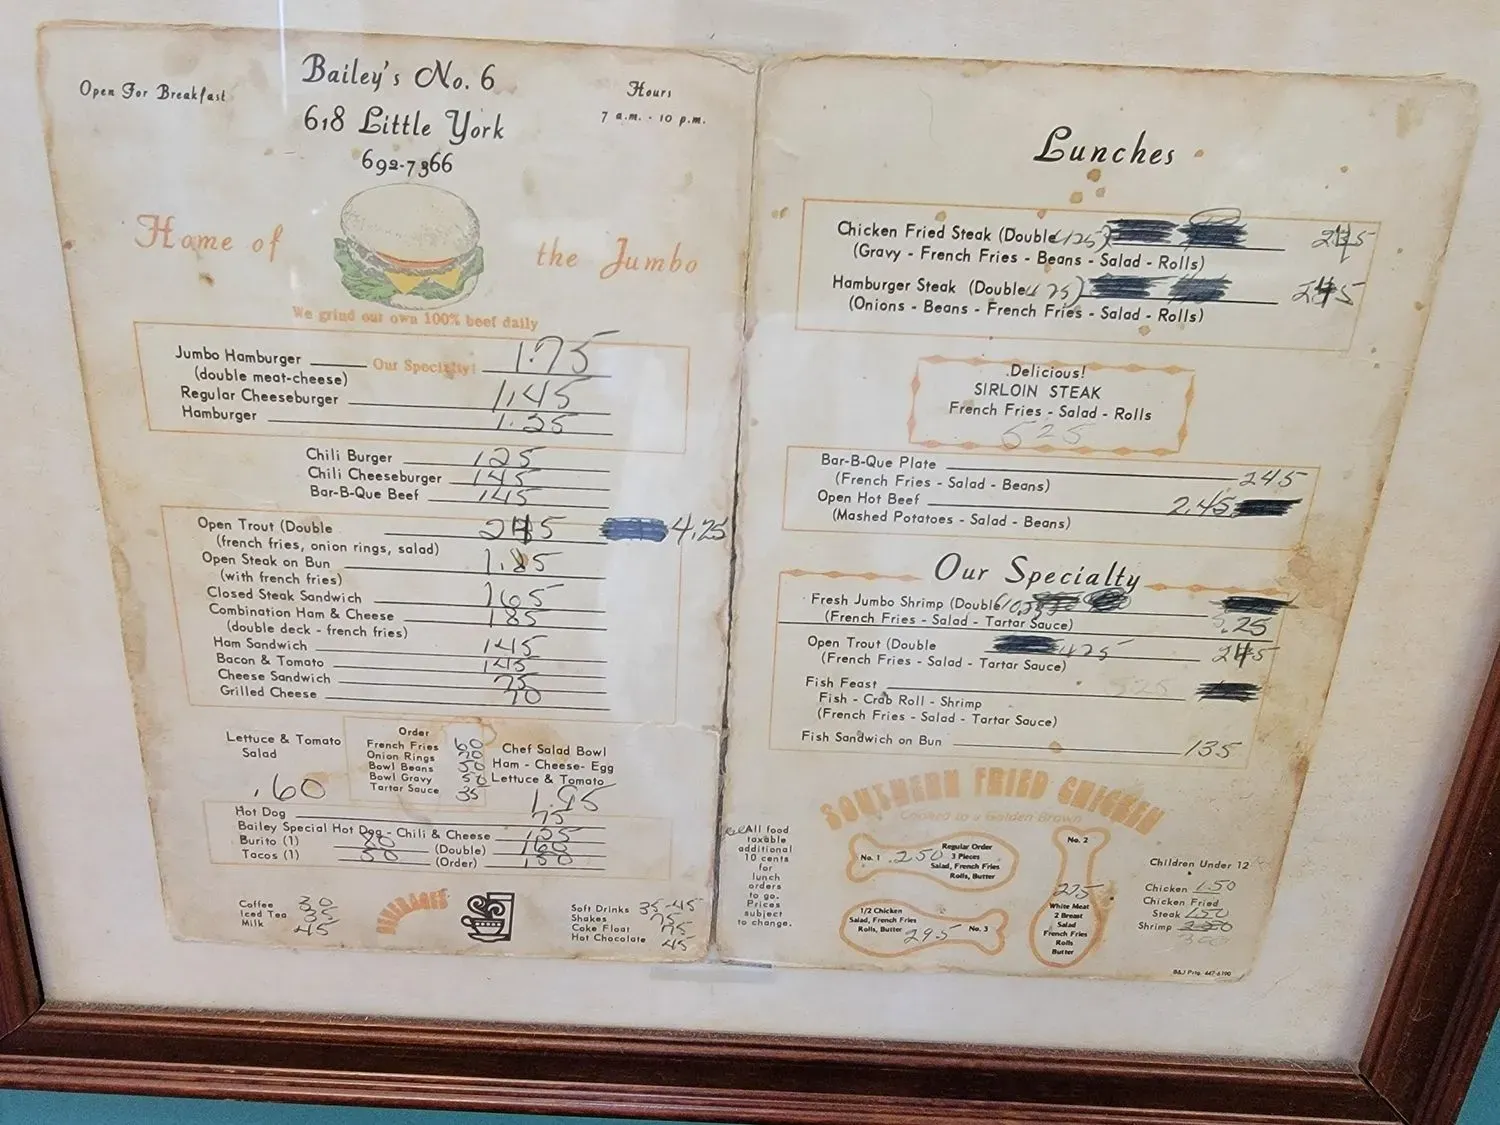 Open For Breakfast
Bailey's No. 6
618 Little York
692-7366
Hours
7 a.m. - 10 p.m.
Home of the Jumbo
We grind our own 100% beef daily
Jumbo Hamburger Our Specialty! 1.75
(double meat-cheese)
Regular Cheeseburger 1.45
Hamburger 1.25
Chili Burger 125
Chili Cheeseburger 145
Bar-B-Que Beef 145
Open Trout (Double 245 4.25
(french fries, onion rings, salad)
Open Steak on Bun 1.85
(with french fries)
Closed Steak Sandwich 165
Combination Ham & Cheese 185
(double deck - french fries)
Ham Sandwich 145
Bacon & Tomato 145
Cheese Sandwich 75
Grilled Cheese 70
Lettuce & Tomato
Salad
.60
Order
French Fries 60
Onion Rings
Bowl Beans 50
Bowl Gravy 50
Tartar Sauce 35
Chef Salad Bowl
Ham - Cheese- Egg
Lettuce & Tomato
1.95
Hot Dog 75
Bailey Special Hot Dog - Chili & Cheese 125
Burito (1) 80 (Double) 160
Tacos (1) 50 (Order) 150
Coffee 30
Iced Tea 35
Milk 45
BEVERAGES
Soft Drinks 35-45
Shakes 75
Coke Float 75
Hot Chocolate 45
Lunches
Chicken Fried Steak (Double 2
(Gravy - French Fries - Beans - Salad - Rolls)
Hamburger Steak (Double 2
(Onions - Beans - French Fries - Salad - Rolls)
Delicious!
SIRLOIN STEAK
French Fries - Salad - Rolls
525
Bar-B-Que Plate 245
(French Fries - Salad - Beans)
Open Hot Beef 2.45
(Mashed Potatoes - Salad - Beans)
Our Specialty
Fresh Jumbo Shrimp (Double 5.25
(French Fries - Salad - Tartar Sauce)
Open Trout (Double 425 245
(French Fries - Salad - Tartar Sauce)
Fish Feast 525
Fish - Crab Roll - Shrimp
(French Fries - Salad - Tartar Sauce)
Fish Sandwich on Bun 135
SOUTHERN FRIED CHICKEN
Cooked to a Golden Brown
All food
taxable
additional
10 cents
for
lunch
orders
to go.
Prices
subject
to change.
No. 1 .250
Regular Order
3 Pieces
Salad, French Fries
Rolls, Butter
No. 2
275
White Meat
2 Breast
Salad
French Fries
Rolls
Butter
1/2 Chicken
Salad, French Fries
Rolls, Butter 295 No. 3
Children Under 12
Chicken 1.50
Chicken Fried
Steak 1.50
Shrimp 300
B&J Prtg. 447-6190